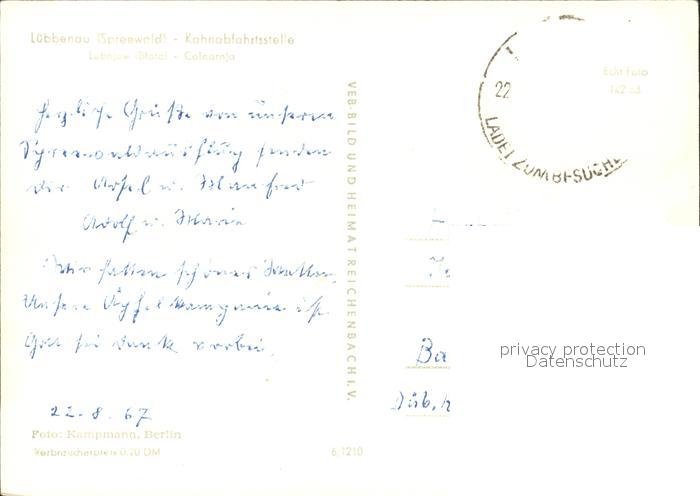 Lübbenau (Spreewald) - Kahnabfahrtsstelle
Lubnjow (Błota) - Cołnarnja
Herzliche Grüße von unserem
Spreewaldausflug senden
dir u. Manfred
Adolf u. Maria
Wir hatten schönes Wetter.
Unsere Äpfelkampanie ist
Gott sei Dank vorbei.
22.8.67
Foto: Kampmann, Berlin
Verbraucherpreis 0,20 DM
6,1210
VEB-BILD UND HEIMAT REICHENBACH I.V.
22
LADET ZUM BESUCHE
Echt Foto
Ba
Düb.
privacy protection
Datenschutz